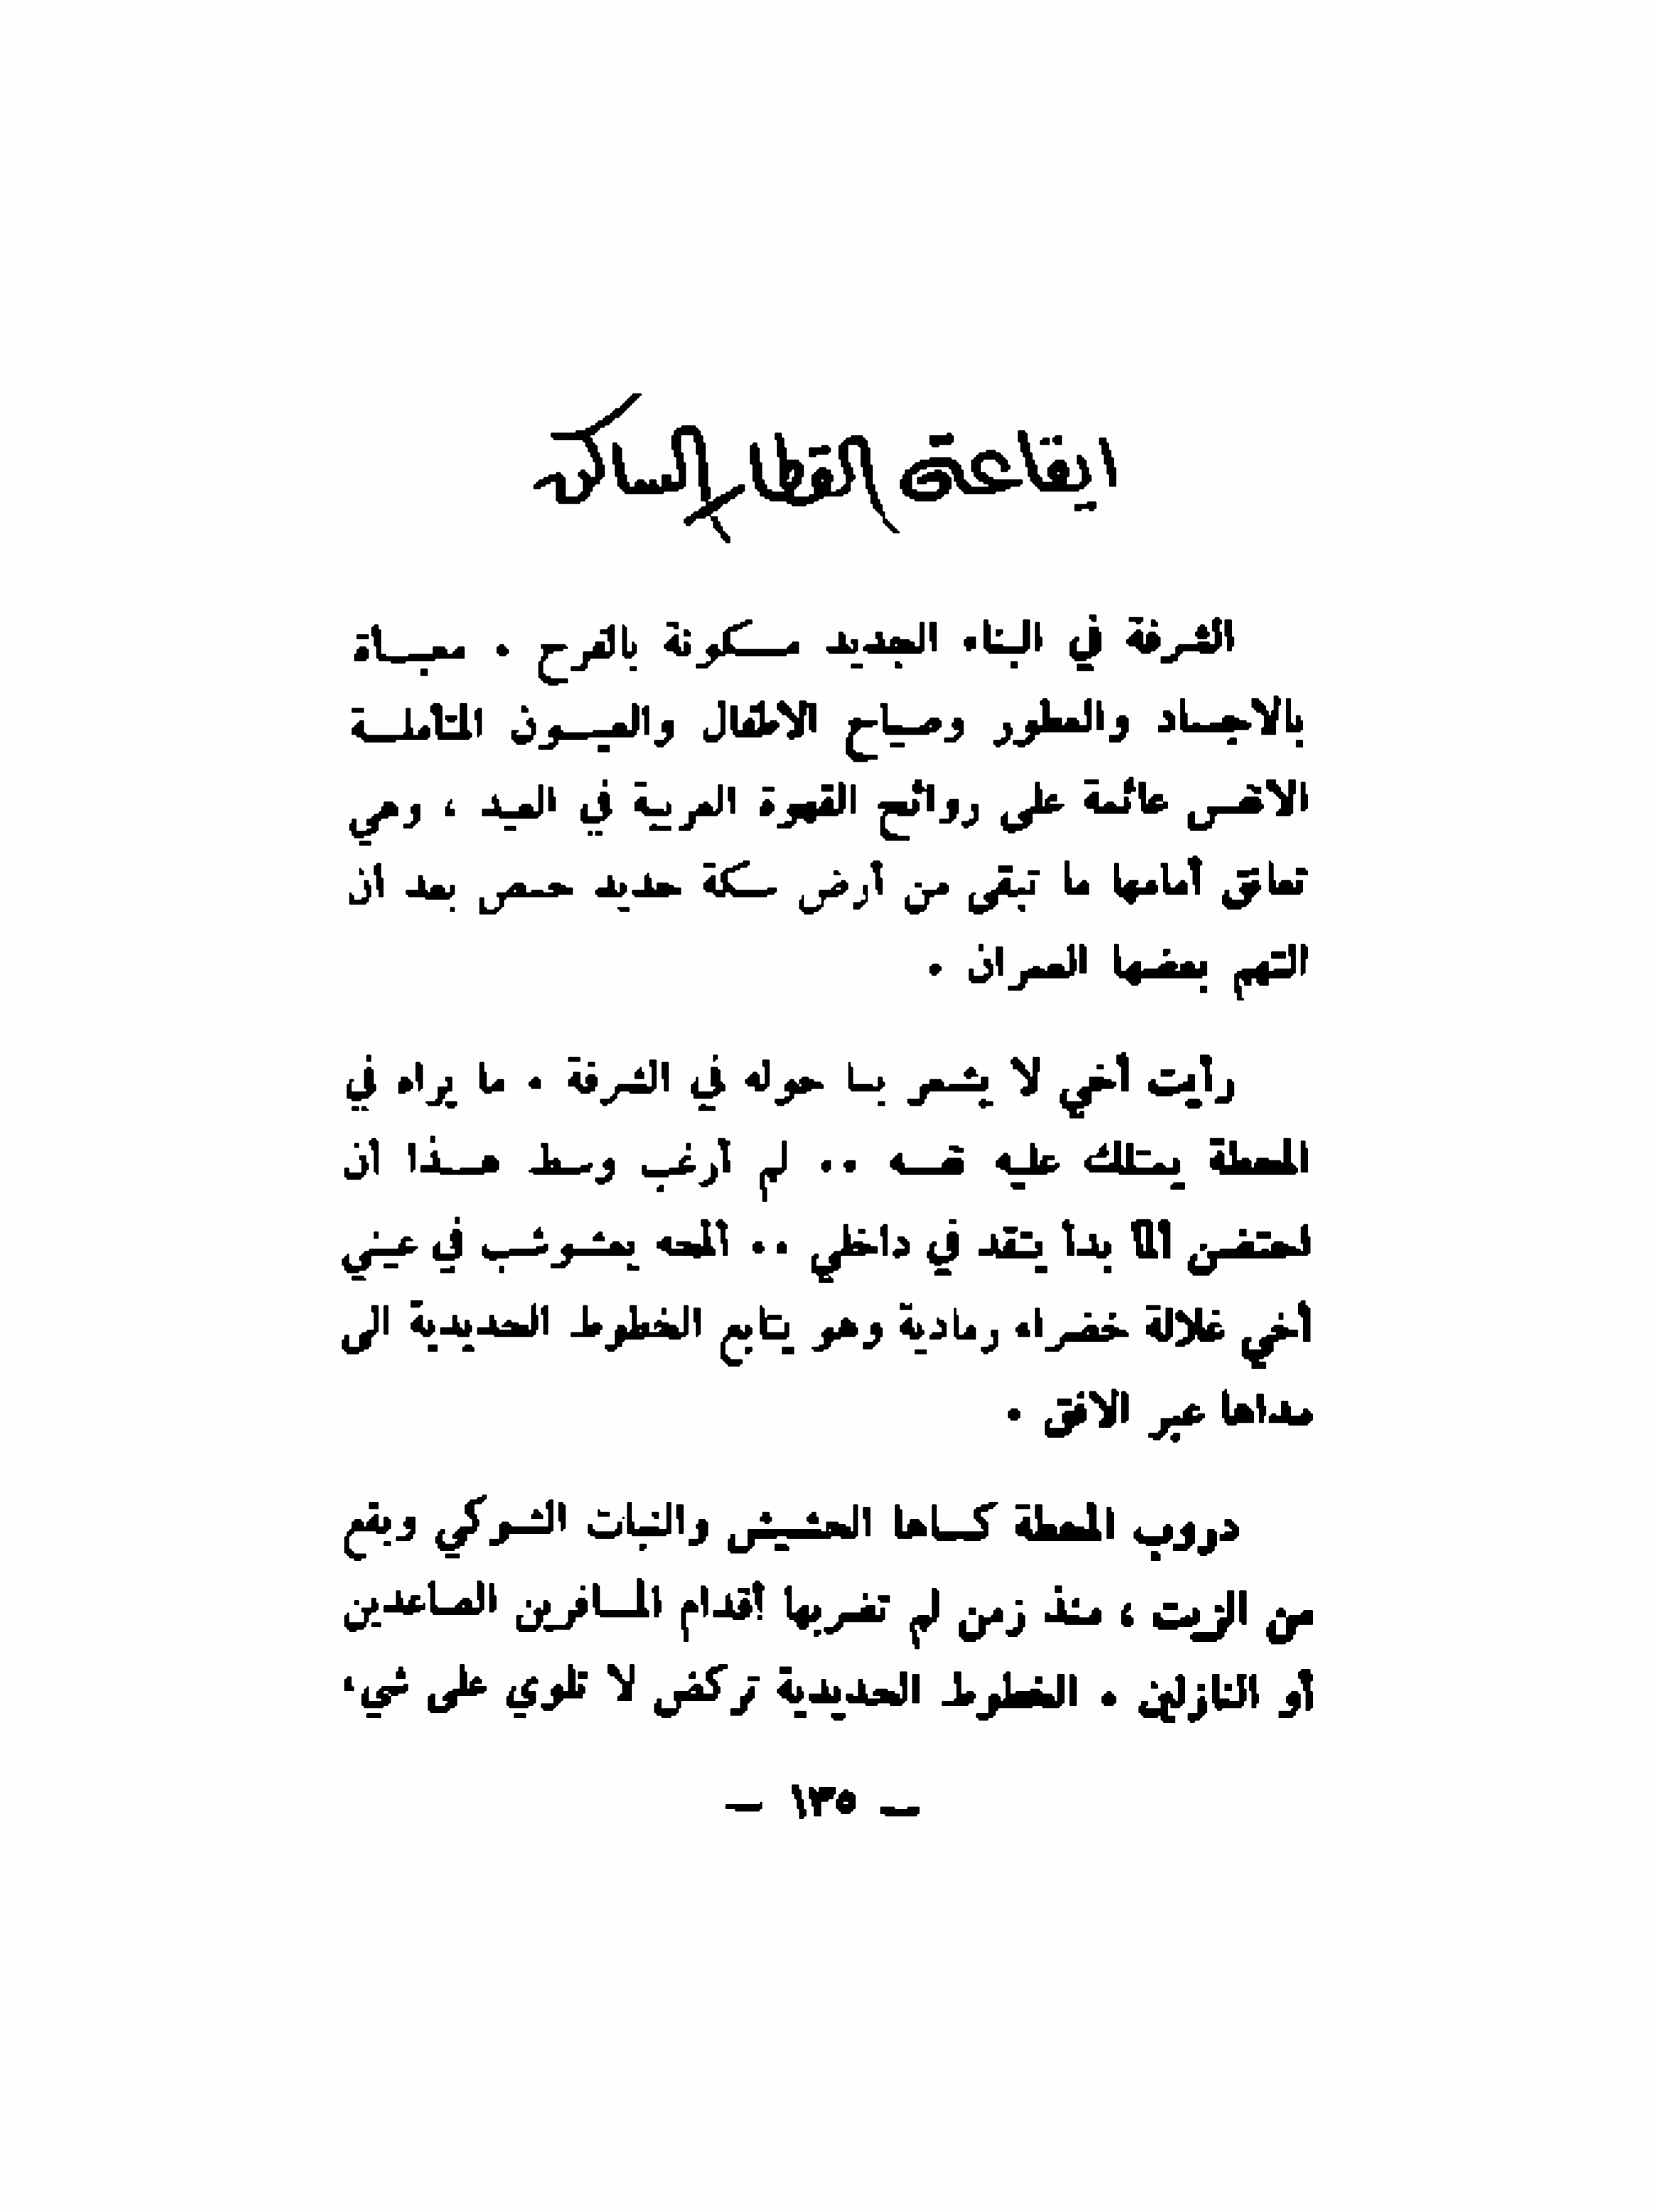 ايقاعة القطار الساكن
الشرفة في البناء الجديد مسكونة بالفرح . معبأة
بالاجساد والعطور وصياح الاطفال والعيون المتأملة
الانفس عائمة على روائح القهوة العربية في العيد ، وهي
تعانق أمامها ما تبقى من أرض سكة حديد حمص بعد أن
التهم بعضها العمران .
رأيت أخي لا يشعر بما حوله في الشرفة . ما يراه في
المحطة يمتلك عليه نفسه .. لم أرغب وسط هذا أن
احتضن ألما بدأ يتقد في داخلي .. ألمحه يعشوشب في عيني
أخي غلالة خضراء رمادية وهو يتابع الخطوط الحديدية الى
مداها عبر الافق .
دروب المحطة كساها الحشيش والنبات الشوكي وبقع
من الزيت ، منذ زمن لم تضربها أقدام المسافرين الصاعدين
أو النازلين . الخطوط الحديدية تركض لا تلوي على شيء
— ١٣٥ —